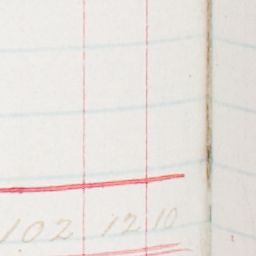 102 12 10